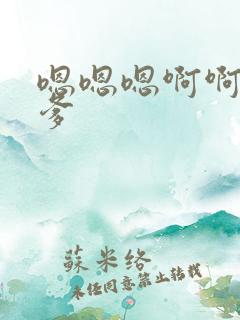 嗯嗯嗯啊啊
爹
蘇米络
未经同意禁止转载